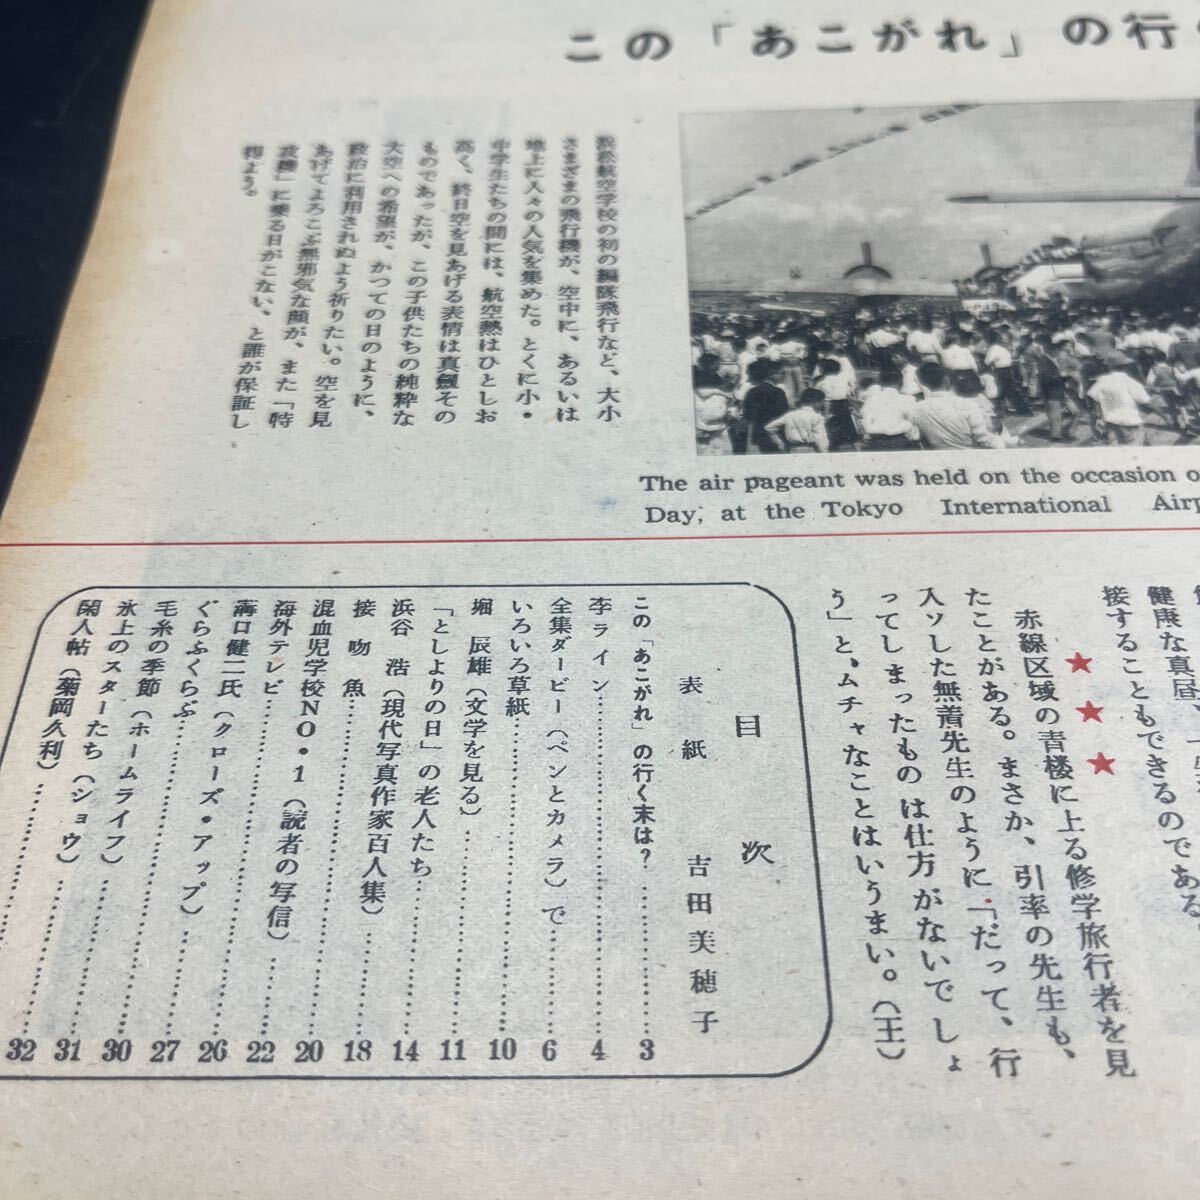 この「あこがれ」の行
浜松航空学校の初の編隊飛行など、大小
さまざまの飛行機が、空中に、あるいは
地上に人々の人気を集めた。とくに小・
中学生たちの間には、航空熱はひとしお
高く、終日空を見あげる表情は真劔その
ものであったが、この子供たちの純粋な
大空への希望が、かつての日のように、
政治に利用されぬよう祈りたい。空を見
あげてよろこぶ無邪気な顔が、また「特
攻機」に乗る日がこない、と誰が保証し
得よう。
The air pageant was held on the occasion
Day, at the Tokyo International
健康な真昼
接することもできるのである。
★ ★ ★
赤線区域の青楼に上る修学旅行者を見
たことがある。まさか、引率の先生も、
入ソした無着先生のように「だって、行
ってしまったものは仕方がないでしょ
う」と、ムチャなことはいうまい。（王）
目 次
表 紙 吉田美穂子
この「あこがれ」の行く末は？…………3
李ライン…………4
全集ダービー（ペンとカメラ）で…………6
いろいろ草紙…………10
堀 辰雄（文学を見る）…………11
「としよりの日」の老人たち…………14
浜谷 浩（現代写真作家百人集）…………18
接 吻 魚…………20
混血児学校NO・1（読者の写信）…………22
海外テレビ…………26
溝口健二氏（クローズ・アップ）…………27
ぐらふくらぶ…………30
毛糸の季節（ホームライフ）…………31
氷上のスターたち（ショウ）…………32
閑人帖（菊岡久利）…………